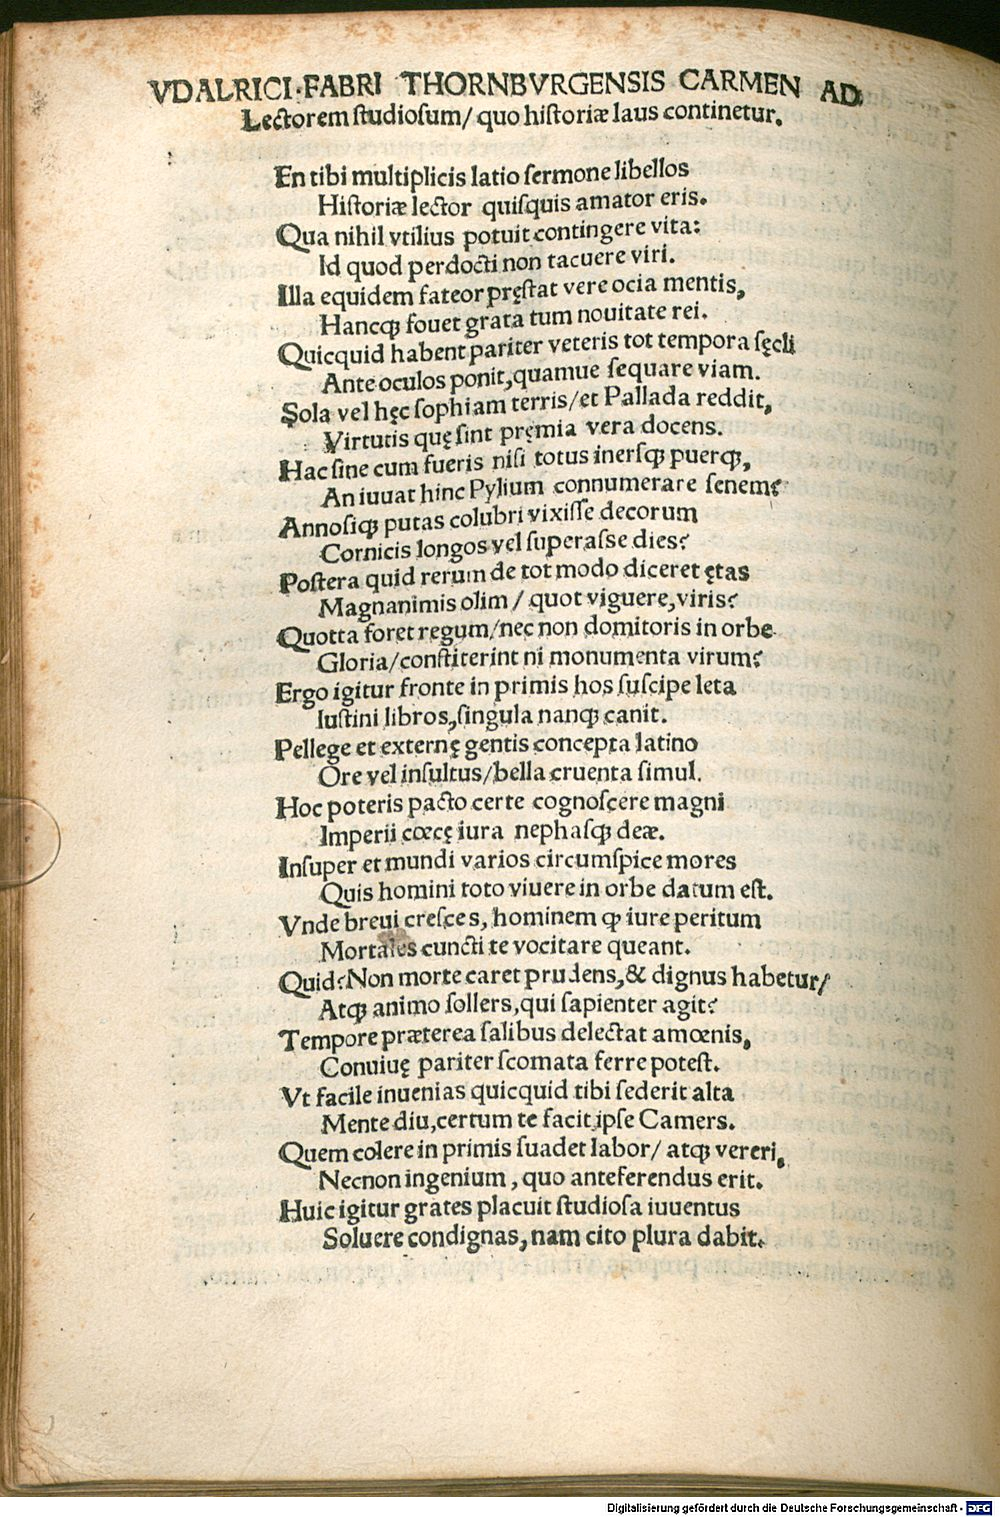 VDALRICI·FABRI THORNBVRGENSIS CARMEN AD
Lectorem ſtudioſum/ quo hiſtoriæ laus continetur.
En tibi multiplicis latio ſermone libellos
Hiſtoriæ lector quiſquis amator eris.
Qua nihil vtilius potuit contingere vita:
Id quod perdocti non tacuere viri.
Illa equidem fateor pręſtat vere ocia mentis,
Hancꝙ fouet grata tum nouitate rei.
Quicquid habent pariter veteris tot tempora ſęcli
Ante oculos ponit, quamue ſequare viam.
Sola vel hęc ſophiam terris/ et Pallada reddit,
Virtutis quę ſint pręmia vera docens.
Hac ſine cum fueris niſi totus inerſꝙ puerꝙ,
An iuuat hinc Pylium connumerare ſenem?
Annoſiꝙ putas colubri vixiſſe decorum
Cornicis longos vel ſuperaſse dies?
Poſtera quid rerum de tot modo diceret ętas
Magnanimis olim/ quot viguere, viris?
Quotta foret regum/ nec non domitoris in orbe
Gloria/ conſtiterint ni monumenta virum?
Ergo igitur fronte in primis hos ſuſcipe leta
Iuſtini libros, ſingula nanꝙ canit.
Pellege et externę gentis concepta latino
Ore vel inſultus/ bella cruenta ſimul.
Hoc poteris pacto certe cognoſcere magni
Imperii cœcę iura nephaſꝙ deæ.
Inſuper et mundi varios circumſpice mores
Quis homini toto viuere in orbe datum eſt.
Vnde breui creſces, hominem ꝙ iure peritum
Mortales cuncti te vocitare queant.
Quid? Non morte caret prudens, & dignus habetur/
Atꝙ animo ſollers, qui ſapienter agit?
Tempore præterea ſalibus delectat amœnis,
Conuiuę pariter ſcomata ferre poteſt.
Vt facile inuenias quicquid tibi ſederit alta
Mente diu, certum te facit ipſe Camers.
Quem colere in primis ſuadet labor/ atꝙ vereri,
Necnon ingenium, quo anteferendus erit.
Huic igitur grates placuit ſtudioſa iuuentus
Soluere condignas, nam cito plura dabit.
Digitalisierung gefördert durch die Deutsche Forschungsgemeinschaft - DFG